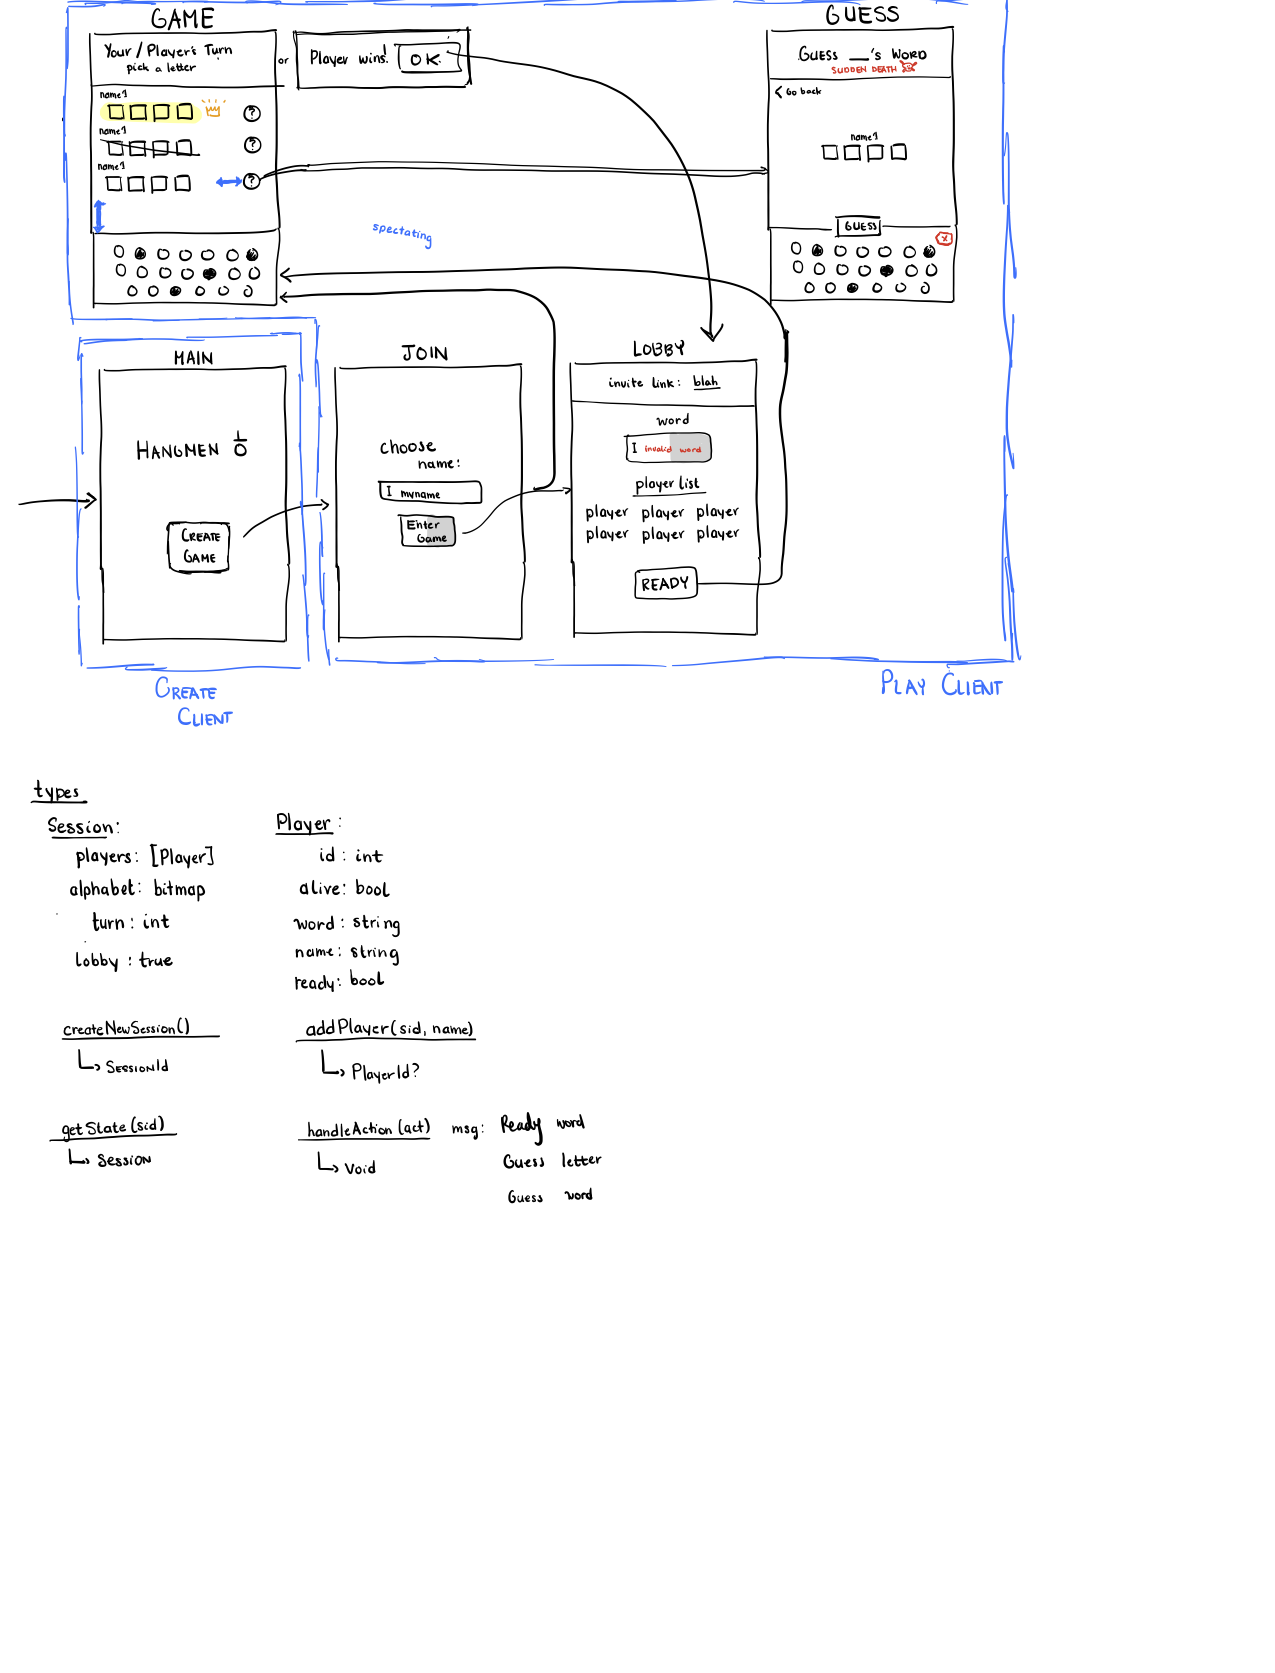 GAME
Your / Player's Turn
pick a letter
or
Player wins! OK
name1
?
name1
?
name1
?
spectating
GUESS
GUESS __'s WORD
SUDDEN DEATH
< Go back
name1
GUESS
x
MAIN
HANGMEN
CREATE
GAME
JOIN
choose
name:
I myname
Enter
Game
LOBBY
invite link: blah
word
I invalid word
player list
player player player
player player player
READY
CREATE
CLIENT
PLAY CLIENT
types
Session:
players: [Player]
alphabet: bitmap
turn: int
lobby: true
Player:
id: int
alive: bool
word: string
name: string
ready: bool
createNewSession()
SESSIONId
addPlayer(sid, name)
PlayerId?
getState(sid)
SESSION
handleAction(act) msg: Ready word
Void
Guess letter
Guess word